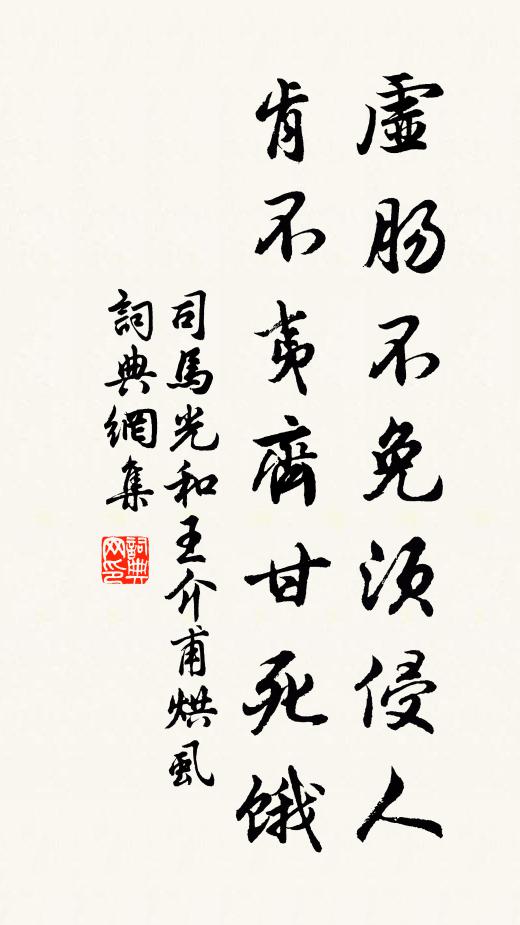 虛腸不免須侵人
肯不夷齊甘死餓
司馬光和王介甫烘虱
詞典網集
詞典網印